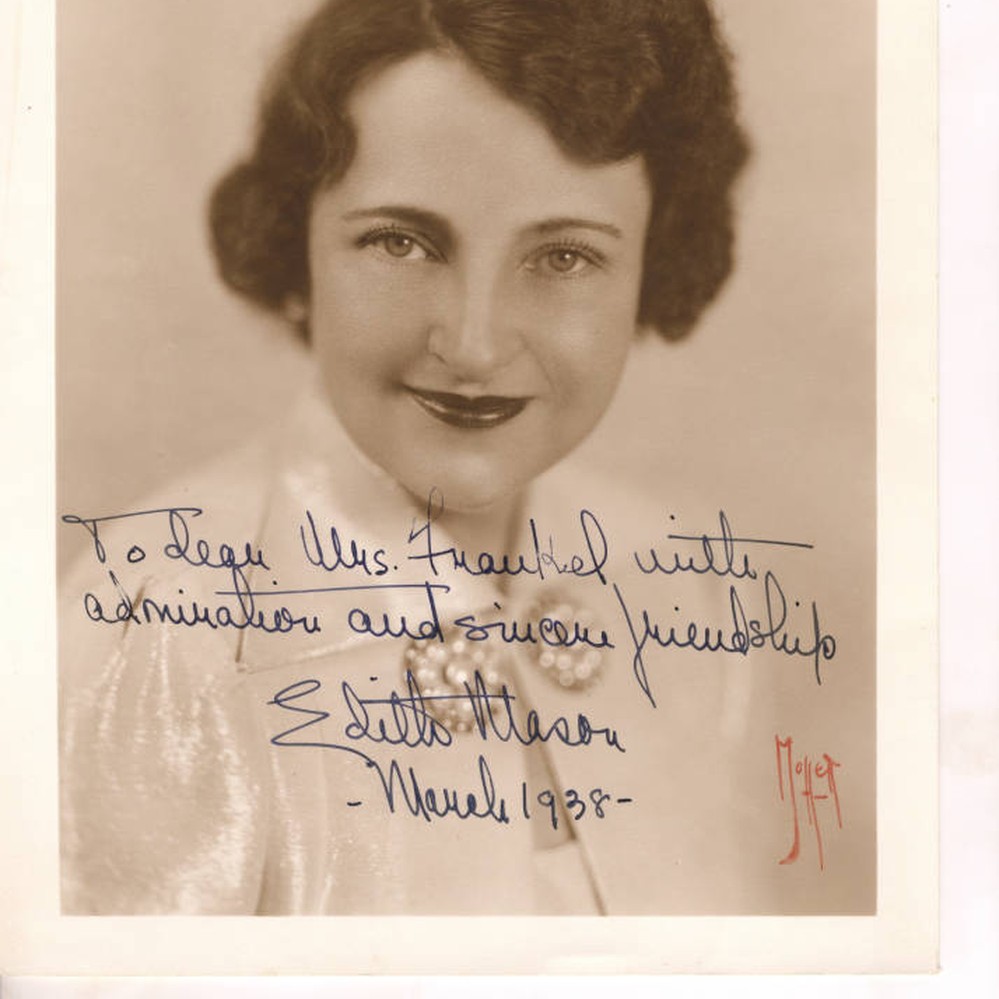 To dear Mrs. Frankel with
admiration and sincere friendship
Edith Mason
- March 1938 -